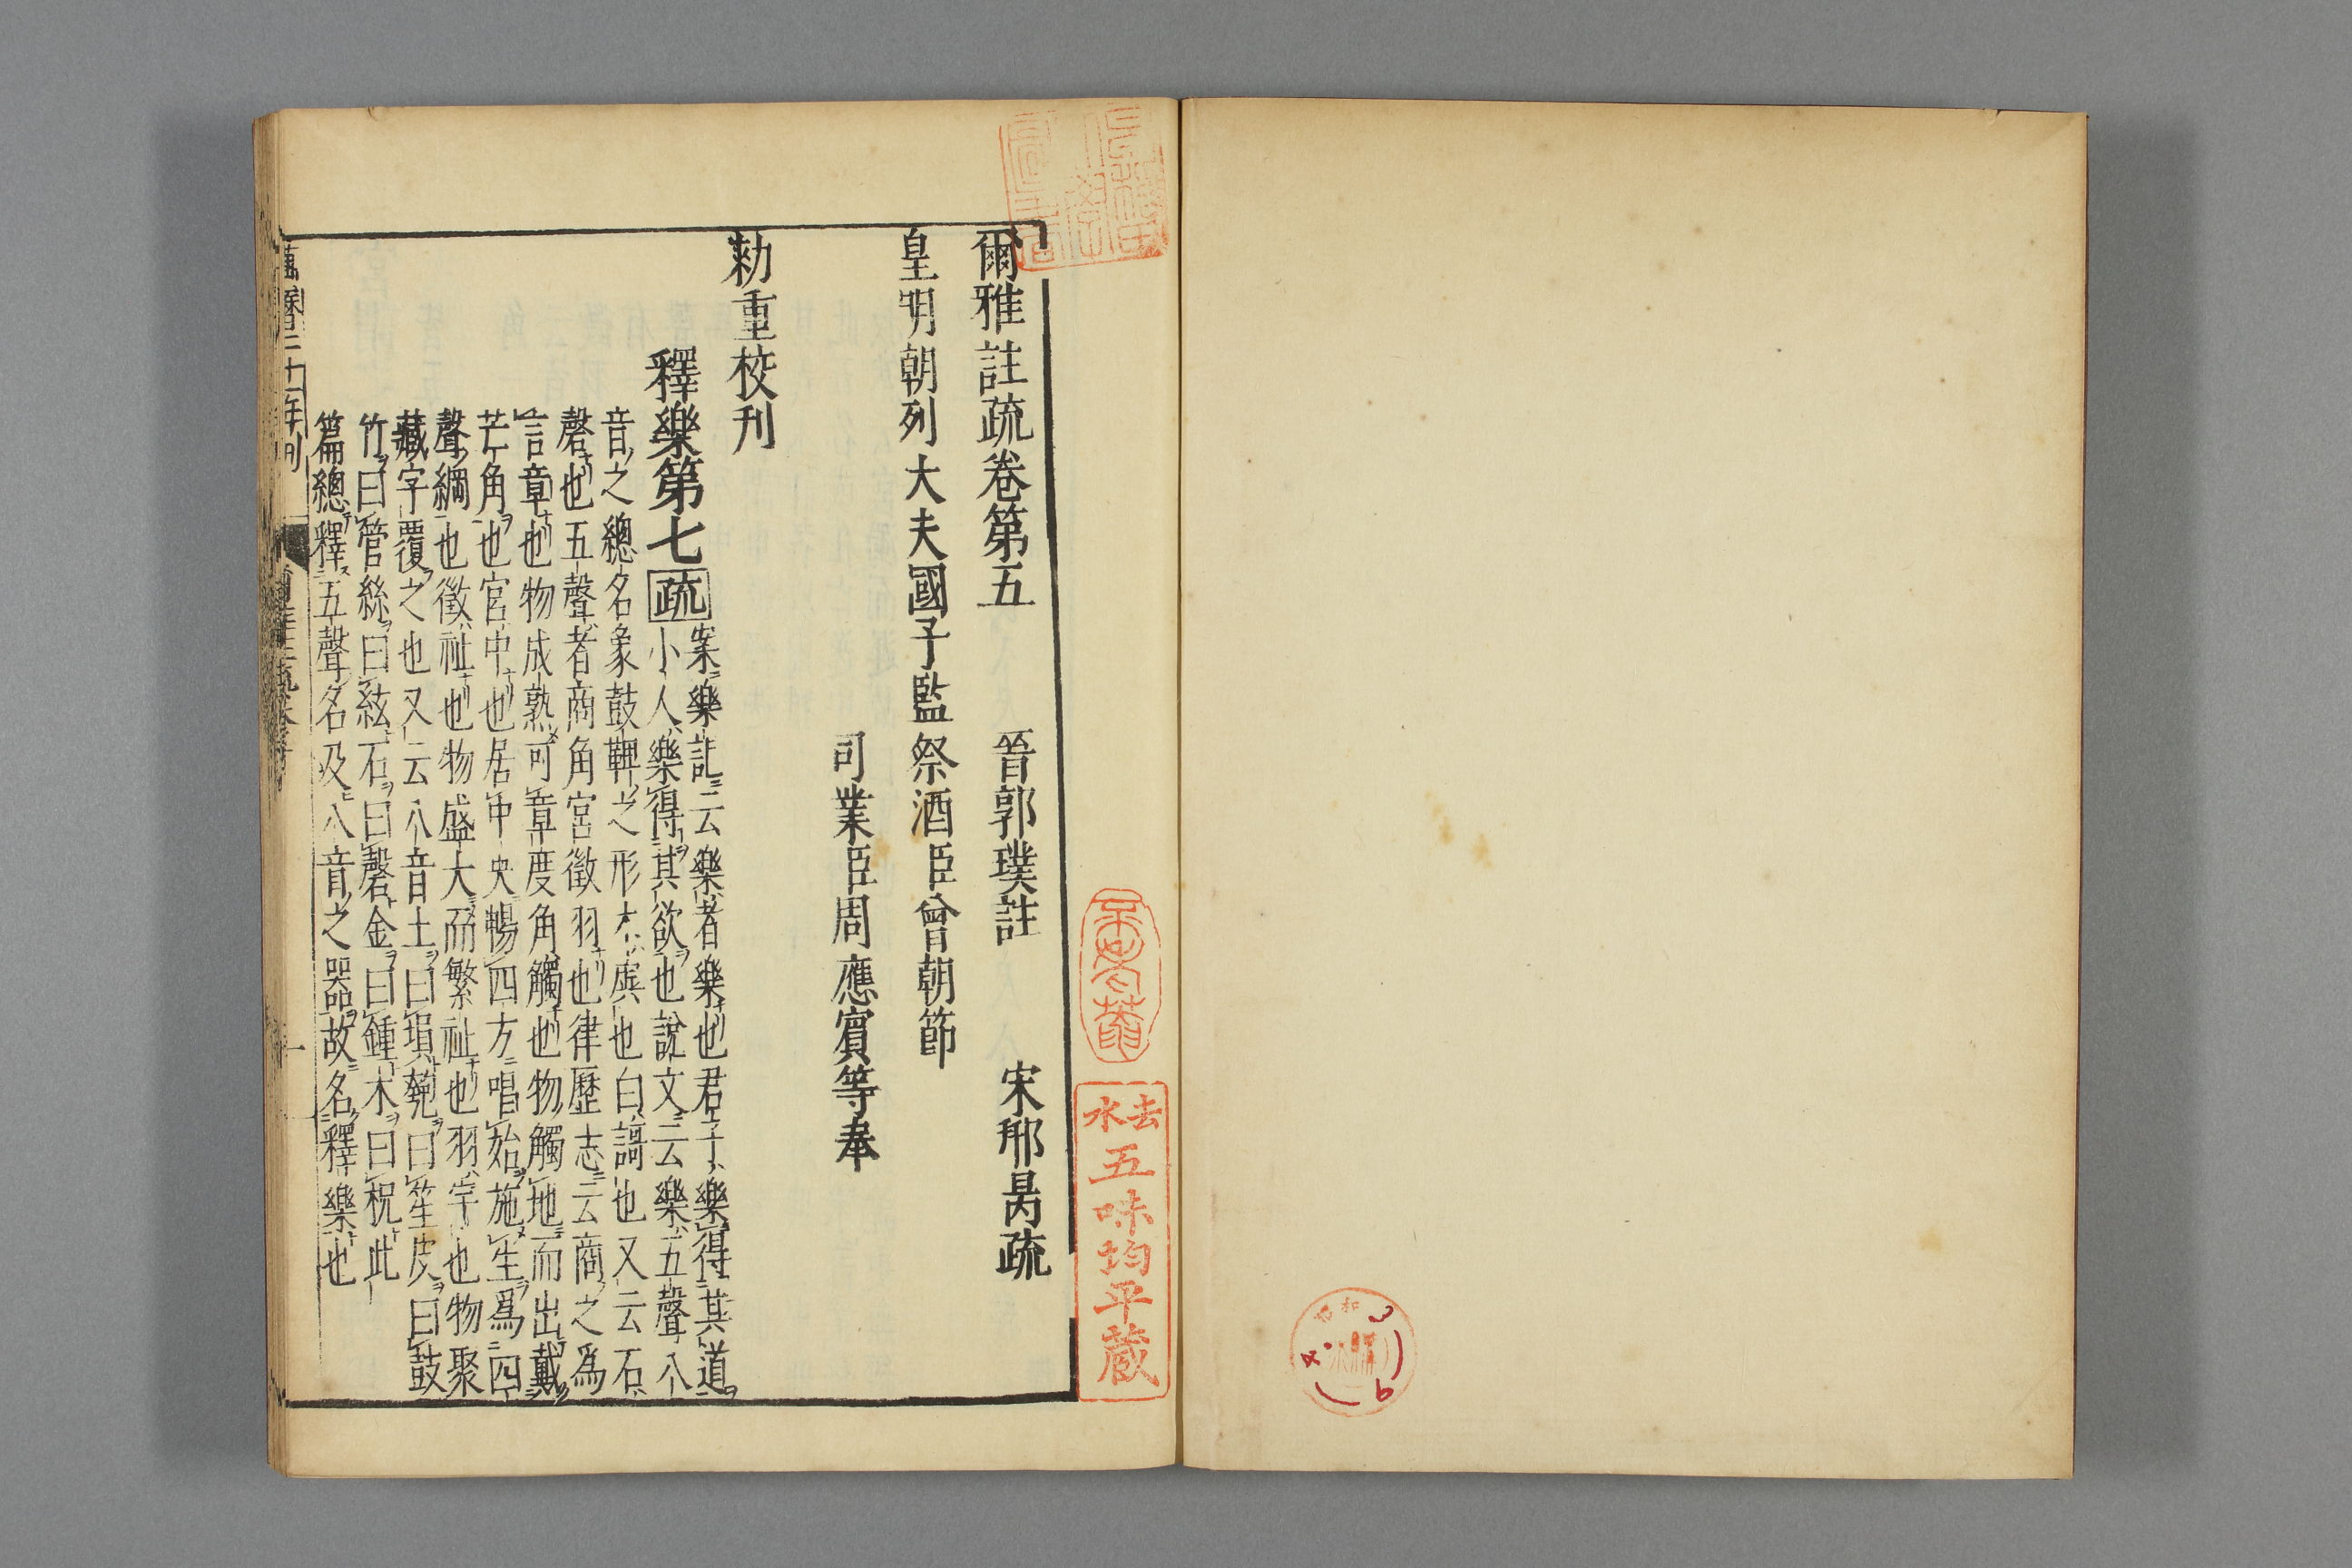 爾雅註疏卷第五
晉郭璞註
宋邢昺疏
皇明朝列大夫國子監祭酒臣曾朝節
司業臣周應賓等奉
勅重校刊
釋樂第七
疏
案樂記云樂者樂也君子樂得其道
小人樂得其欲也說文云樂五聲八
音之總名象鼓鞞之形木虡也白謌也又云石
磬也五聲者商角宮徵羽也律歷志云商之爲
言章也物成熟可章度角觸也物觸地而出戴
芒角也宮中也居中央暢四方唱始施生爲四
聲綱也徵祉也物盛大而繁祉也羽宇也物聚
藏宇覆之也又云八音土曰塤匏曰笙皮曰鼓
竹曰管絲曰絃石曰磬金曰鍾木曰柷此
篇總釋五聲名及八音之器故名釋樂也
萬曆二十一年刊
爾雅註疏卷五
一
去水
五味均平蔵
昭和